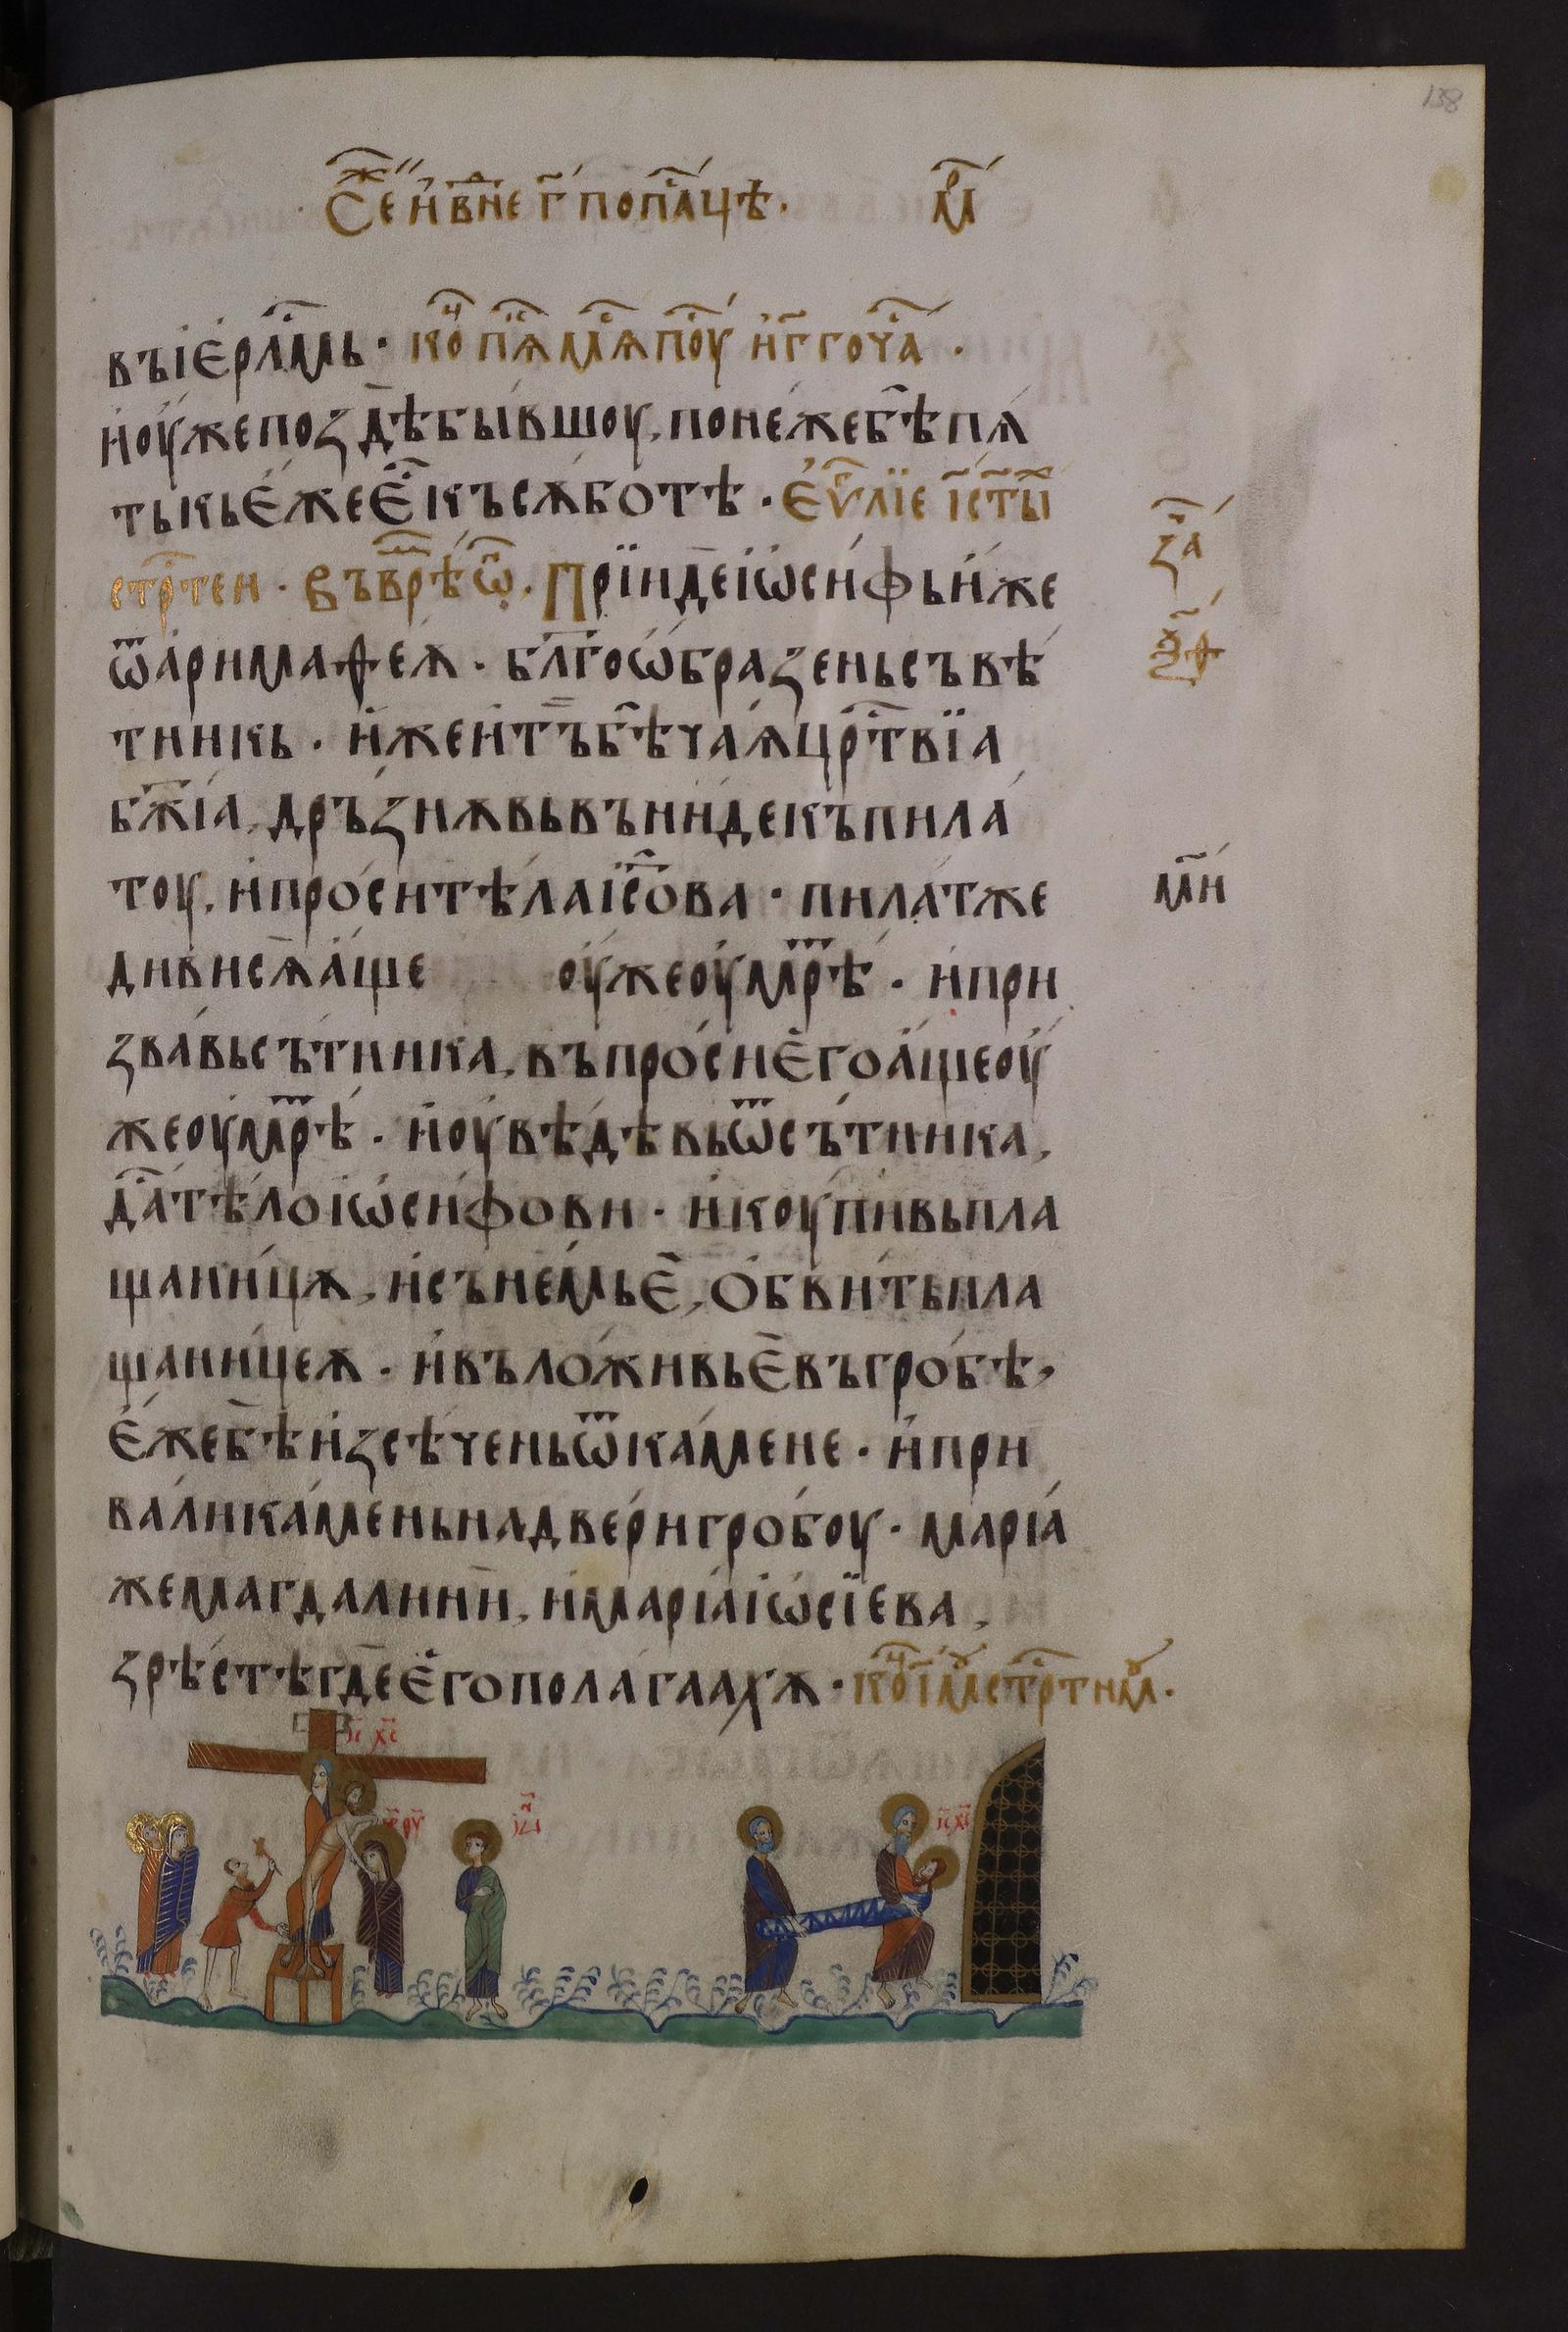 138
Се҃ и҆ в҃ не г҃ по па́сцѣ · мр
въ і҆ер҇лмь · ко҇ц пѧ҇ мѧ҇ по҇у и҆ г҃ го ча҇ ·
и҆ оу҆же поздѣ бы́вшоу, поне́же бѣ̀ пѧ́
тькь е҆́же е҆҇ къ сѫбо́тѣ · Еѵ҇лїе і҃ ст҃ы́х
стр҇тен · въ вр҇ѣмѡ҇ · Прїиде і҆ѡ́сифь и҆́же
ѿ а҆римаѳеѫ · бл҃гоѡ҆́бразень съвѣ́
тникь · и҆́же и҆ тъ бѣ̀ ча́ѧ цр҇твїа
бж҃їа, дръзнѫвь въни́де къ пила́
тоу, и҆ проси́ тѣ́ла і҆с҃ова · пила́т же
диви сѧ а҆́ще оу҆же оу҆мрѣ́ · и҆ при
зва́вь сътника, въпросѝ е҆го̀ а҆́ще оу҆
же оу҆мрѣ́ · и҆ оу҆вѣ́дѣвь ѿ сътника,
да҇ тѣ́ло і҆ѡ́сифови · и҆ коупи́вь пла
щани́цѫ, и҆ сънемь е҆̀, ѻ҆бви́ть пла
щани́цеѫ · и҆ въложи́вь е҆̀ въ гро́бѣ,
е҆́же бѣ̀ и҆зсѣ́чень ѿ ка́мене · и҆ при
валѝ ка́мень на две́ри гро́боу · марїа́
же магдалини́, и҆ марїа і҆ѡ́сїева,
зрѣ́стѣ гдѐ е҆го̀ полага́ахѫ · ко҇ц і҃ мꙋ стр҇тнмꙋ ·
за҇ч
мн҃и
і҃с х҃с
мр҃ ѳу҃
і҃с х҃с